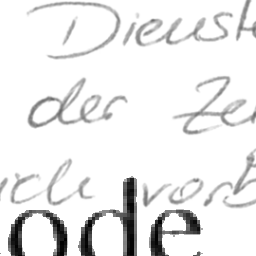 Dienst
der Ze
ich vorb
ode